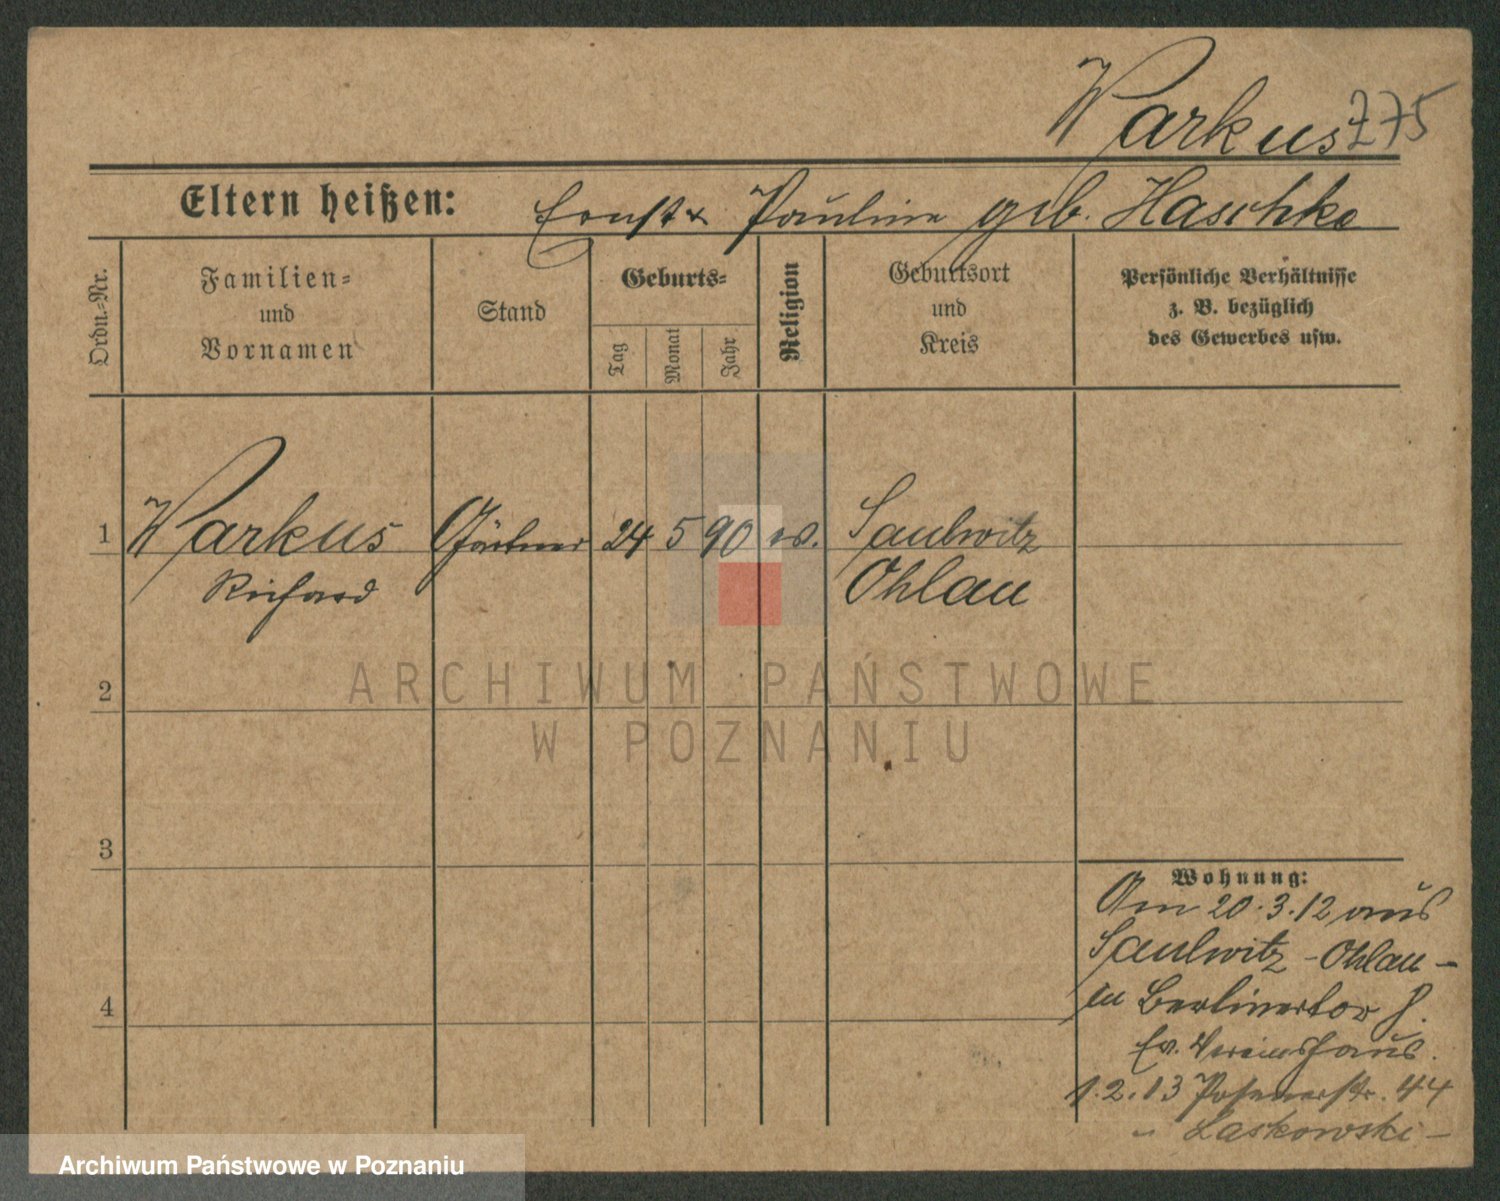 Warkus
Z75
Eltern heißen: Ernst & Pauline geb. Haschke
Ordn.-Nr.
Familien-
und
Vornamen
Stand
Geburts-
Tag
Monat
Jahr
Religion
Geburtsort
und
Kreis
Persönliche Verhältnisse
z. B. bezüglich
des Gewerbes usw.
1 Warkus Gärtner 24 5 90 ev. Saulwitz
Richard Ohlau
2
3
4
Wohnung:
Am 20.3.12 aus
Saulwitz - Ohlau -
in Berlinertor
Ev. Vereinshaus.
1.2.13 Posenerstr. 44
Laskowski -
ARCHIWUM PAŃSTWOWE
W POZNANIU
Archiwum Państwowe w Poznaniu